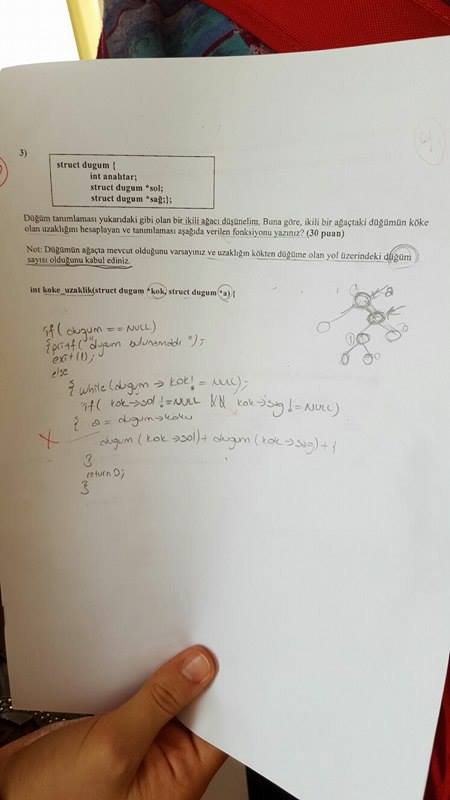 3)
struct dugum {
int anahtar;
struct dugum *sol;
struct dugum *sağ;};
Düğüm tanımlaması yukarıdaki gibi olan bir ikili ağacı düşünelim. Buna göre, ikili bir ağaçtaki düğümün köke
olan uzaklığını hesaplayan ve tanımlaması aşağıda verilen fonksiyonu yazınız? (30 puan)
Not: Düğümün ağaçta mevcut olduğunu varsayınız ve uzaklığın kökten düğüme olan yol üzerindeki düğüm
sayısı olduğunu kabul ediniz.
int koke_uzaklik(struct dugum *kok, struct dugum *a){
if( dugum == NULL)
{ printf("dugum bulunamadı");
exit(1);
else
{ while(dugum → kok! = NULL);
if( kok→sol != NULL && kok→sag != NULL)
{ a = dugum→koku
dugum (kok→sol)+ dugum (kok→sag)+1
}
return 0;
}